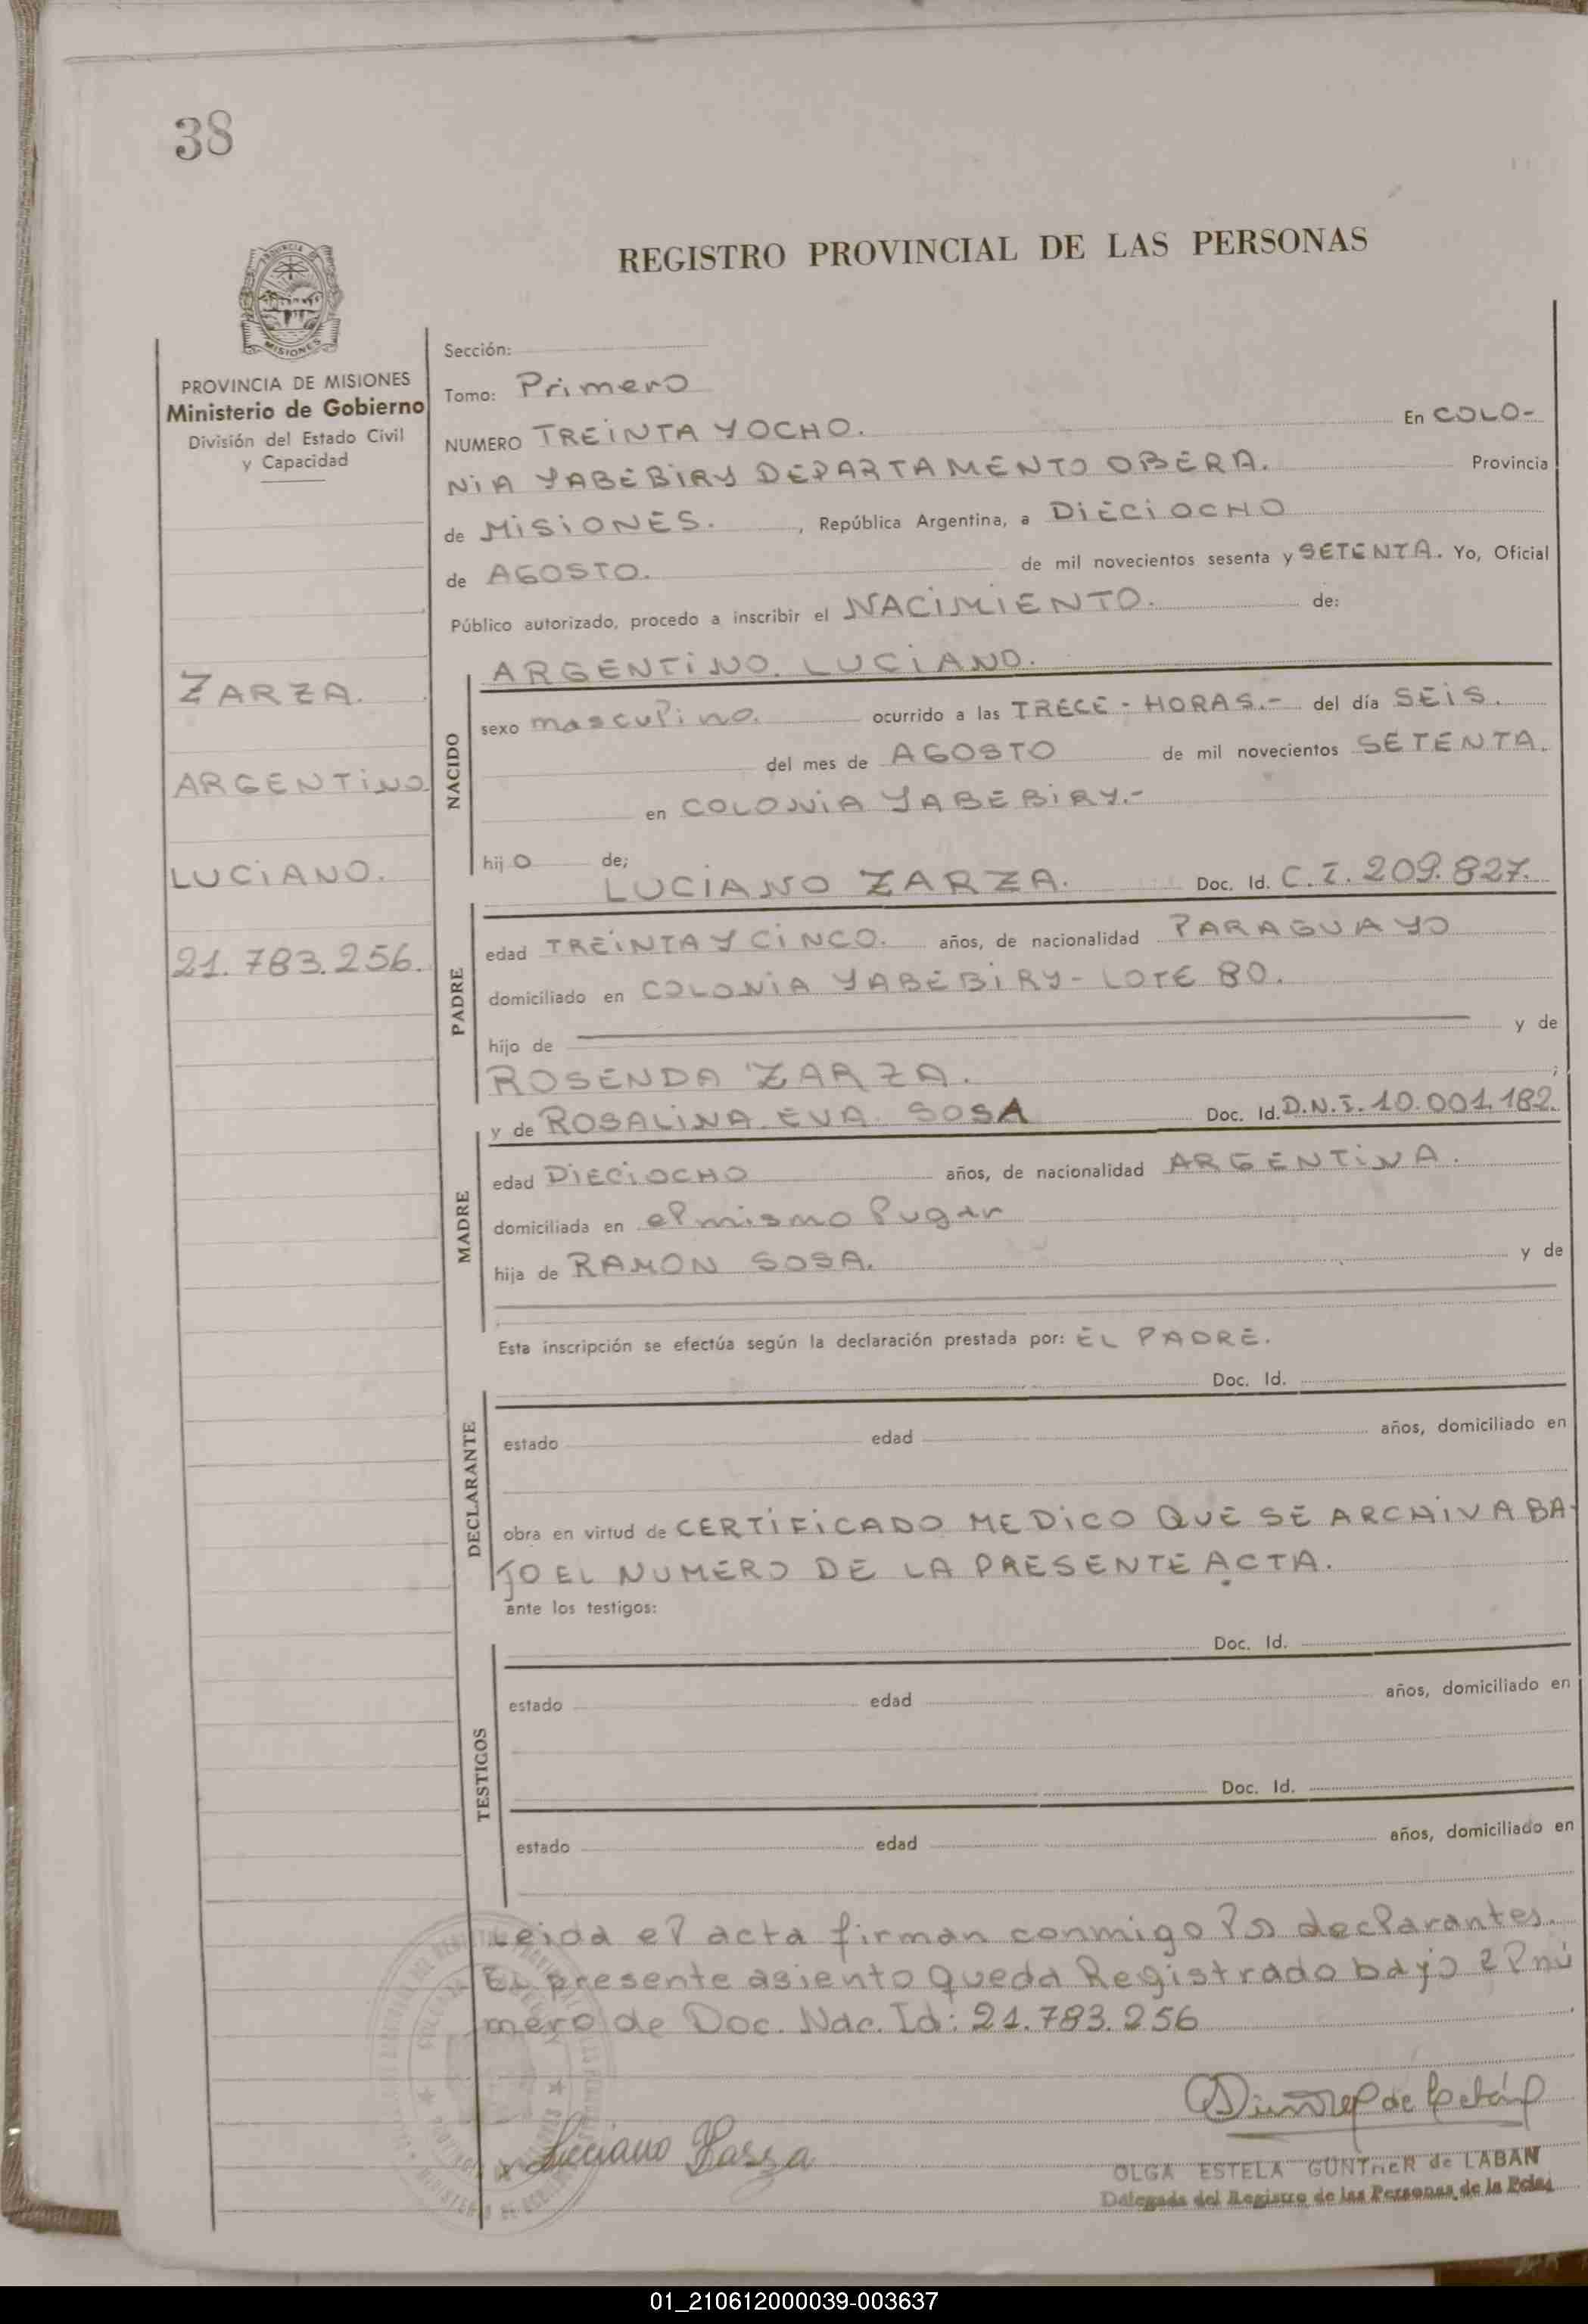 38
REGISTRO PROVINCIAL DE LAS PERSONAS
MISIONES
PROVINCIA DE MISIONES
Ministerio de Gobierno
División del Estado Civil
y Capacidad
ZARZA.
ARGENTINO
LUCIANO.
21.783.256.
Sección:
Tomo: Primero
NUMERO TREINTA Y OCHO. En COLO-
NIA YABEBIRY DEPARTAMENTO OBERA. Provincia
de MISIONES. , República Argentina, a DIECIOCHO
de AGOSTO. de mil novecientos sesenta y SETENTA. Yo, Oficial
Público autorizado, procedo a inscribir el NACIMIENTO. de:
NACIDO
ARGENTINO. LUCIANO.
sexo masculino. ocurrido a las TRECE - HORAS.- del día SEIS.
del mes de AGOSTO de mil novecientos SETENTA.
en COLONIA YABEBIRY.-
hijo de;
PADRE
LUCIANO ZARZA. Doc. Id. C.I. 209.827.
edad TREINTA Y CINCO. años, de nacionalidad PARAGUAYO
domiciliado en COLONIA YABEBIRY - LOTE 80.
hijo de y de
ROSENDA ZARZA. ;
MADRE
y de ROSALINA EVA SOSA Doc. Id. D.N.I. 10.001.182.
edad DIECIOCHO años, de nacionalidad ARGENTINA.
domiciliada en el mismo lugar
hija de RAMON SOSA. y de
Esta inscripción se efectúa según la declaración prestada por: EL PADRE.
DECLARANTE
Doc. Id.
estado edad años, domiciliado en
obra en virtud de CERTIFICADO MEDICO QUE SE ARCHIVA BA-
JO EL NUMERO DE LA PRESENTE ACTA.
ante los testigos:
TESTIGOS
Doc. Id.
estado edad años, domiciliado en
Doc. Id.
estado edad años, domiciliado en
Leida el acta firman conmigo los declarantes.
El presente asiento queda Registrado bajo el nú
mero de Doc. Nac. Id: 21.783.256
Luciano Zarza
OLGA ESTELA GUNTHER de LABAN
Delegada del Registro de las Personas de la Pcia.
01_210612000039-003637